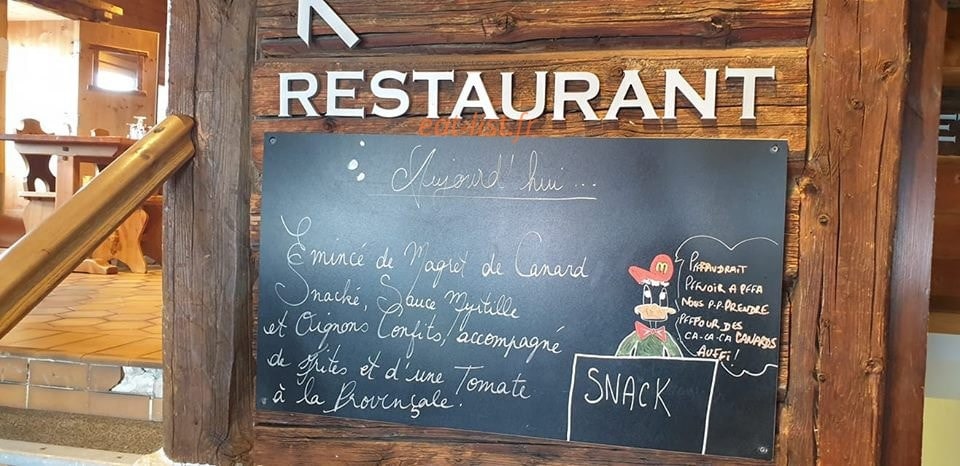 RESTAURANT
Aujourd'hui ...
Emincé de Magret de Canard
Snacké, Sauce Myrtille
et Oignons Confits, accompagné
de frites et d'une Tomate
à la Provençale.
M
PFFAUDRAIT
NOUS P-P-PRENDRE
PFFPOUR DES
CA-CA-CA CANARDS
AUFFI !
SNACK